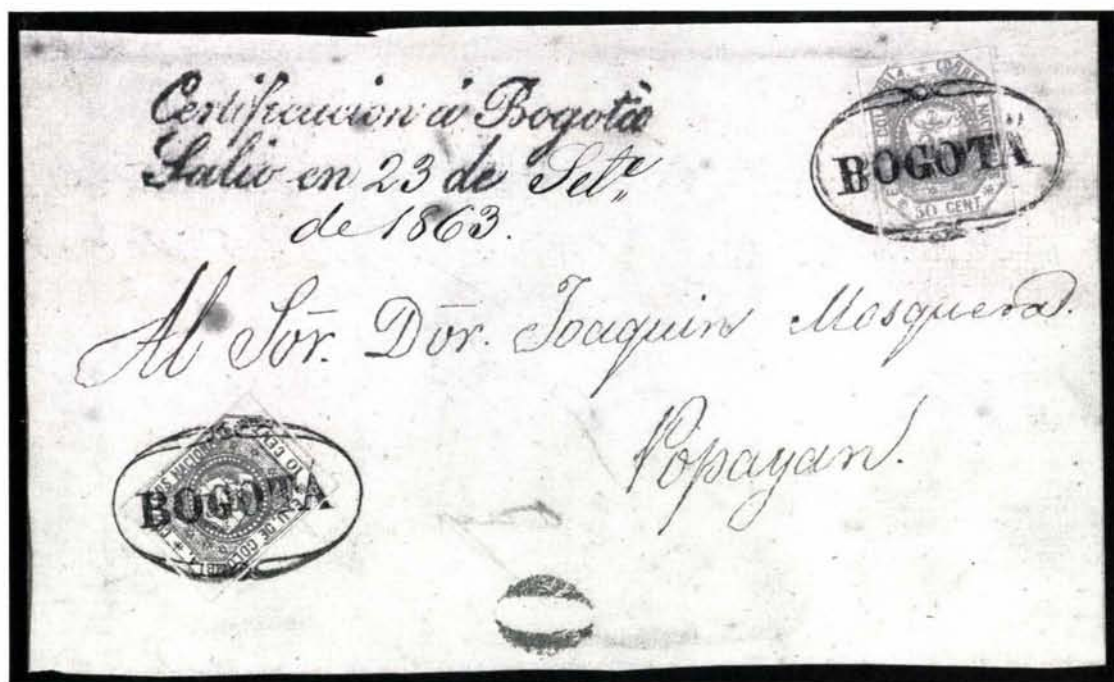 Certificacion à Bogotà
Salio en 23 de Set.e
de 1863.
BOGOTÁ
50 CENT.
Al Sōr. Dōr. Joaquin Mosquera.
Popayan.
BOGOTÁ